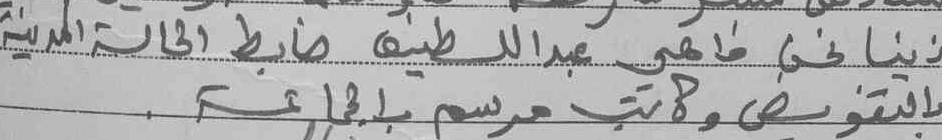 لدينا نحن فاهمي عبد اللطيف ضابط الحالة المدنية
بالتفويض وكاتب مرسم بالجماعة.